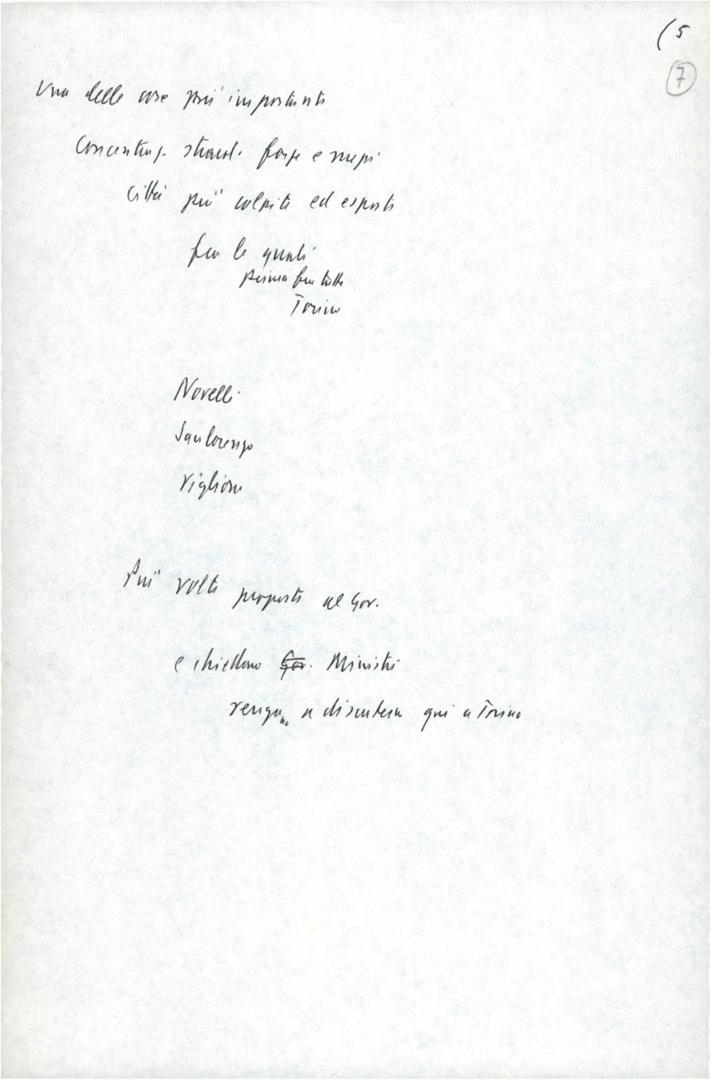 (5
7
Una delle cose più importanti
Concentraz. straord. forze e mezzi
città più colpite ed esposte
fra le quali
prima fra tutte
Torino
Novelli
Sanlorenzo
Viglione
Più volte proposte al Gov.
e chiedono Gov. Ministri
vengano a discutere qui a Torino